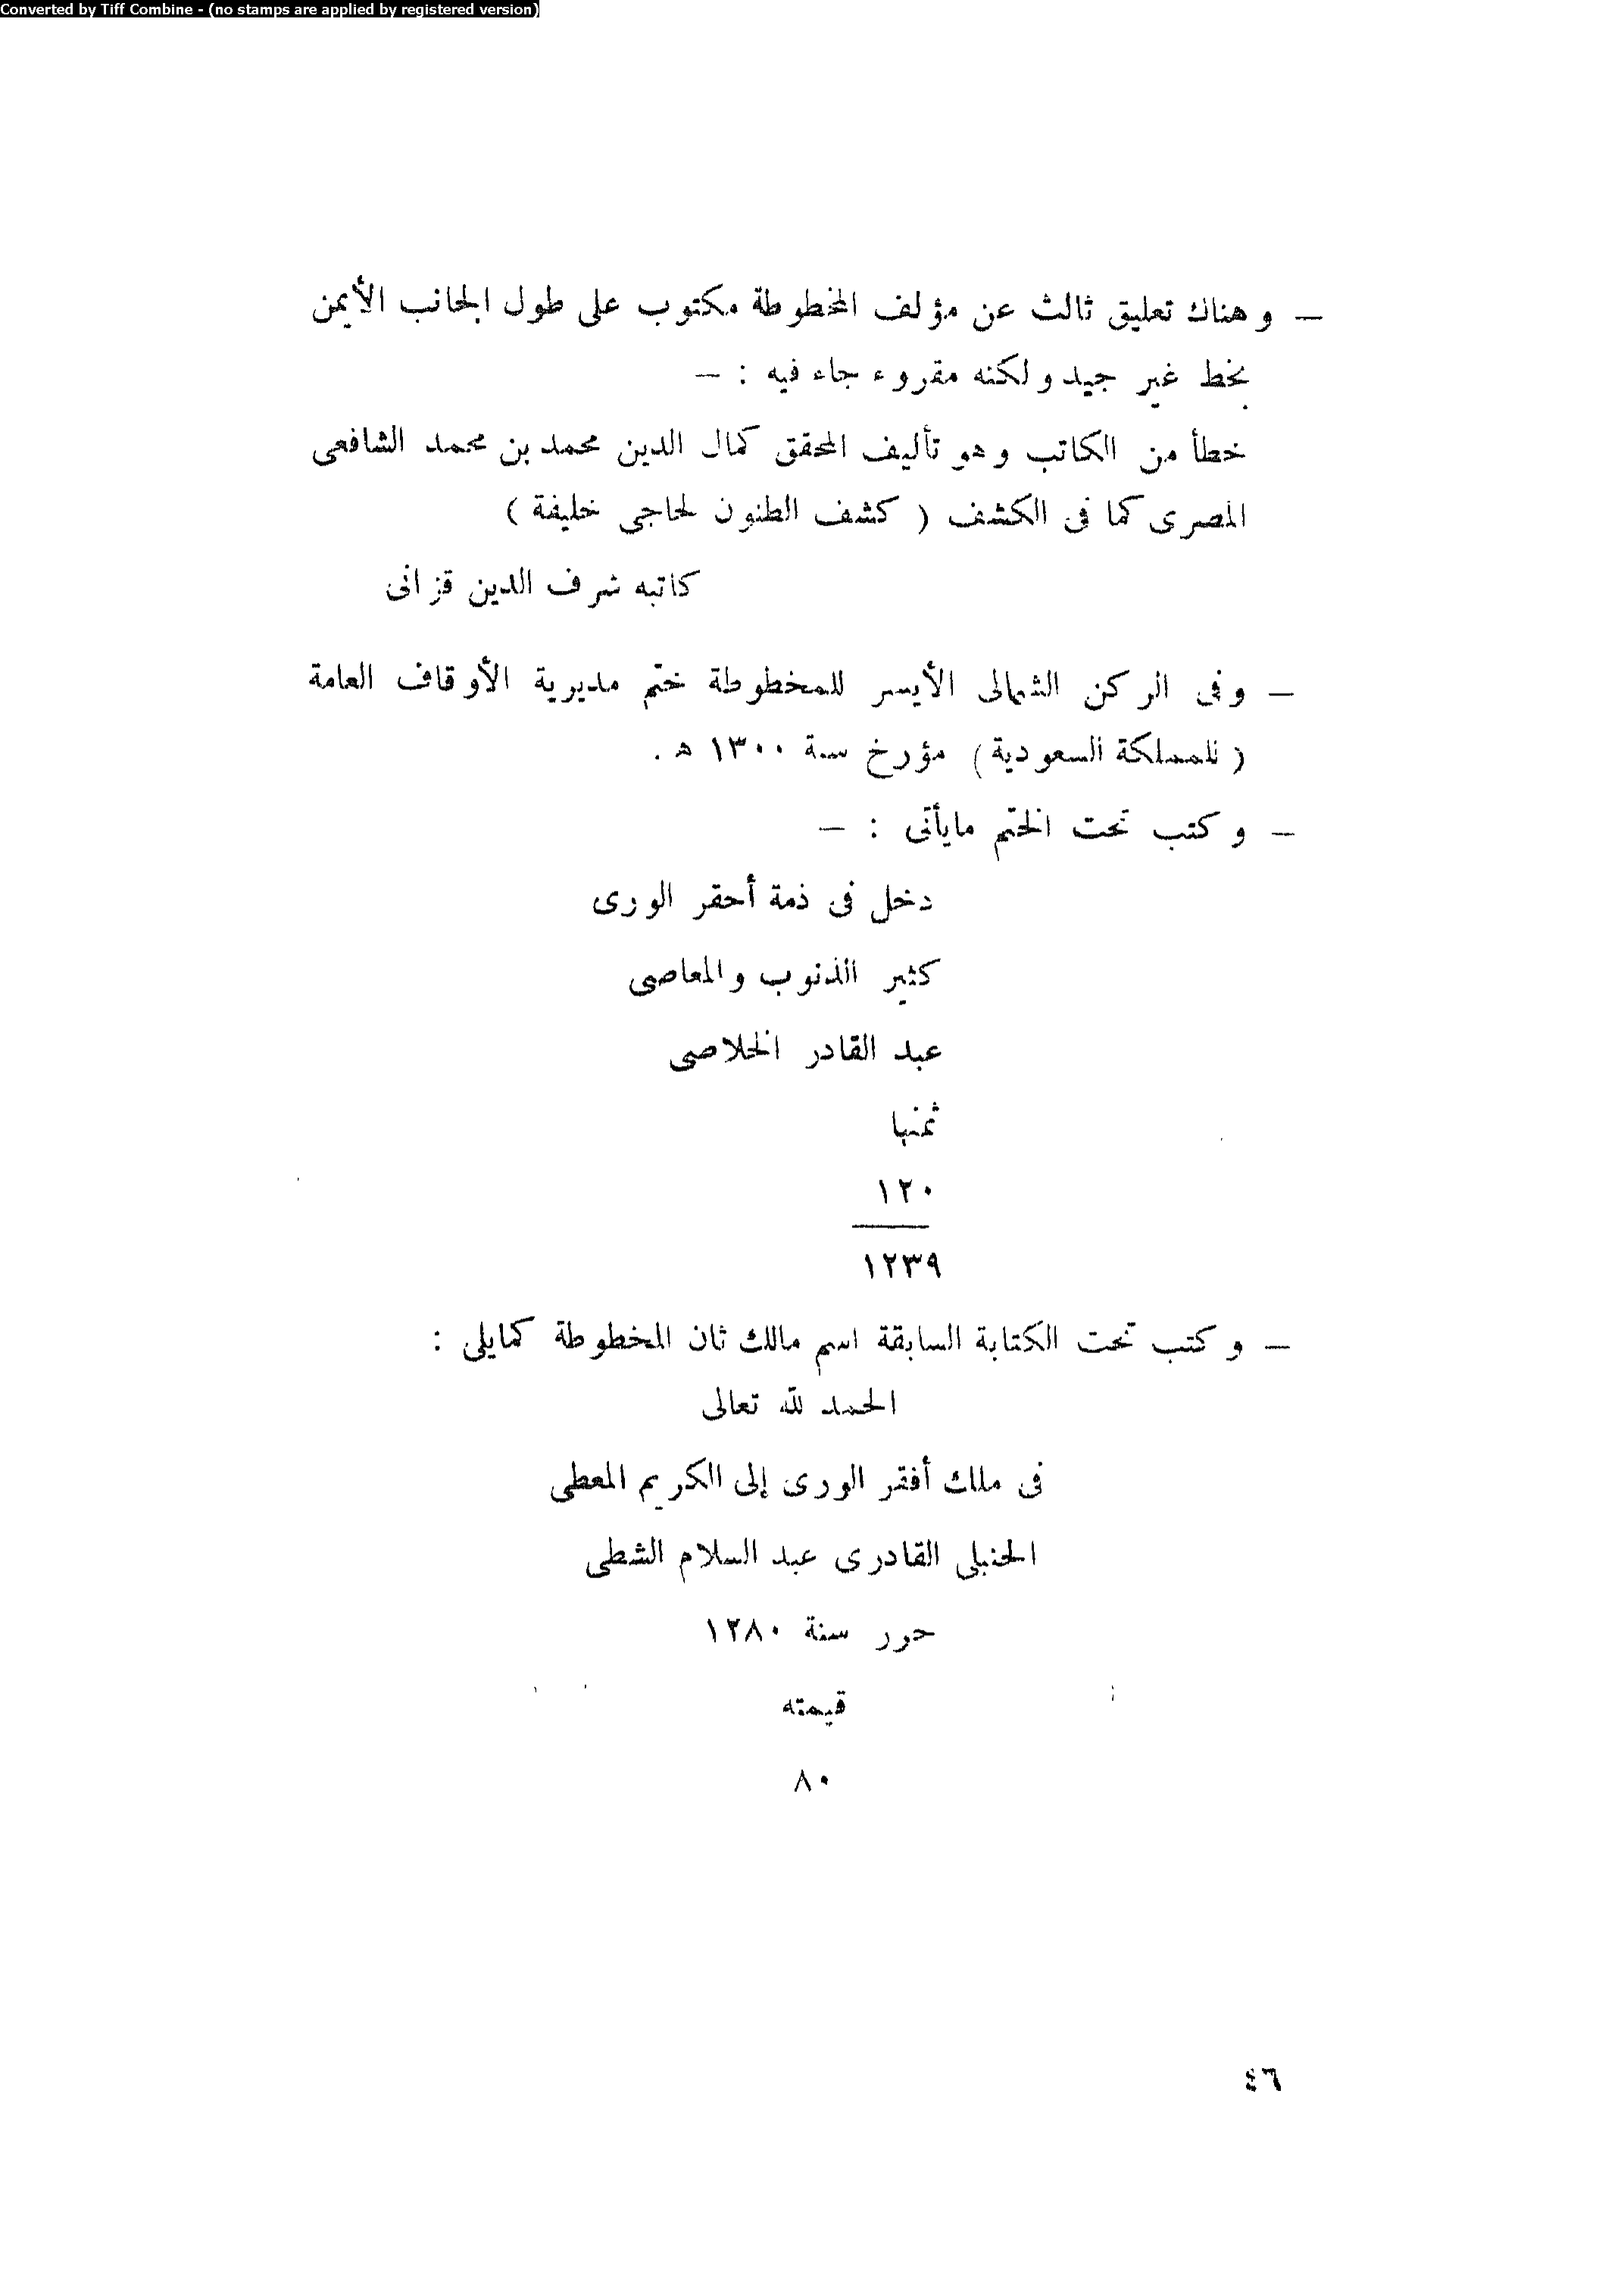 Converted by Tiff Combine - (no stamps are applied by registered version)
— وهناك تعليق ثالث عن مؤلف المخطوطة مكتوب على طول الجانب الأيمن
بخط غير جيد ولكنه مقروء جاء فيه : —
خطأ من الكاتب وهو تأليف المحقق كمال الدين محمد بن محمد الشافعى
المصرى كما فى الكشف ( كشف الظنون لحاجى خليفة )
كاتبه شرف الدين قزانى
— وفى الركن الشمالى الأيسر للمخطوطة ختم مديرية الأوقاف العامة
( للمملكة السعودية ) مؤرخ سنة ١٣٠٠ هـ .
— وكتب تحت الختم مايأتى : —
دخل فى ذمة أحقر الورى
كثير الذنوب والمعاصى
عبد القادر الخلاصى
ثمنها
١٢٠
١٢٣٩
— وكتب تحت الكتابة السابقة اسم مالك ثان المخطوطة كمايلى :
الحمد لله تعالى
فى ملك أفقر الورى إلى الكريم المعطى
الحنبلى القادرى عبد السلام الشطى
حرر سنة ١٢٨٠
قيمته
٨٠
٤٦